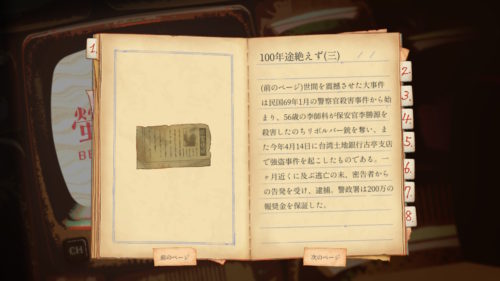 1.
100年途絶えず(三)
(前のページ)世間を震撼させた大事件
は民国69年1月の警察官殺害事件から始
まり、56歳の李師科が保安官李勝源を
殺害したのちリボルバー銃を奪い、ま
た今年4月14日に台湾土地銀行古亭支店
で強盗事件を起こしたものである。一
ヶ月近くに及ぶ逃亡の末、密告者から
の告発を受け、逮捕。警政署は200万の
報奨金を保証した。
2.
3.
4.
5.
6.
7.
8.
前のページ
次のページ
CH